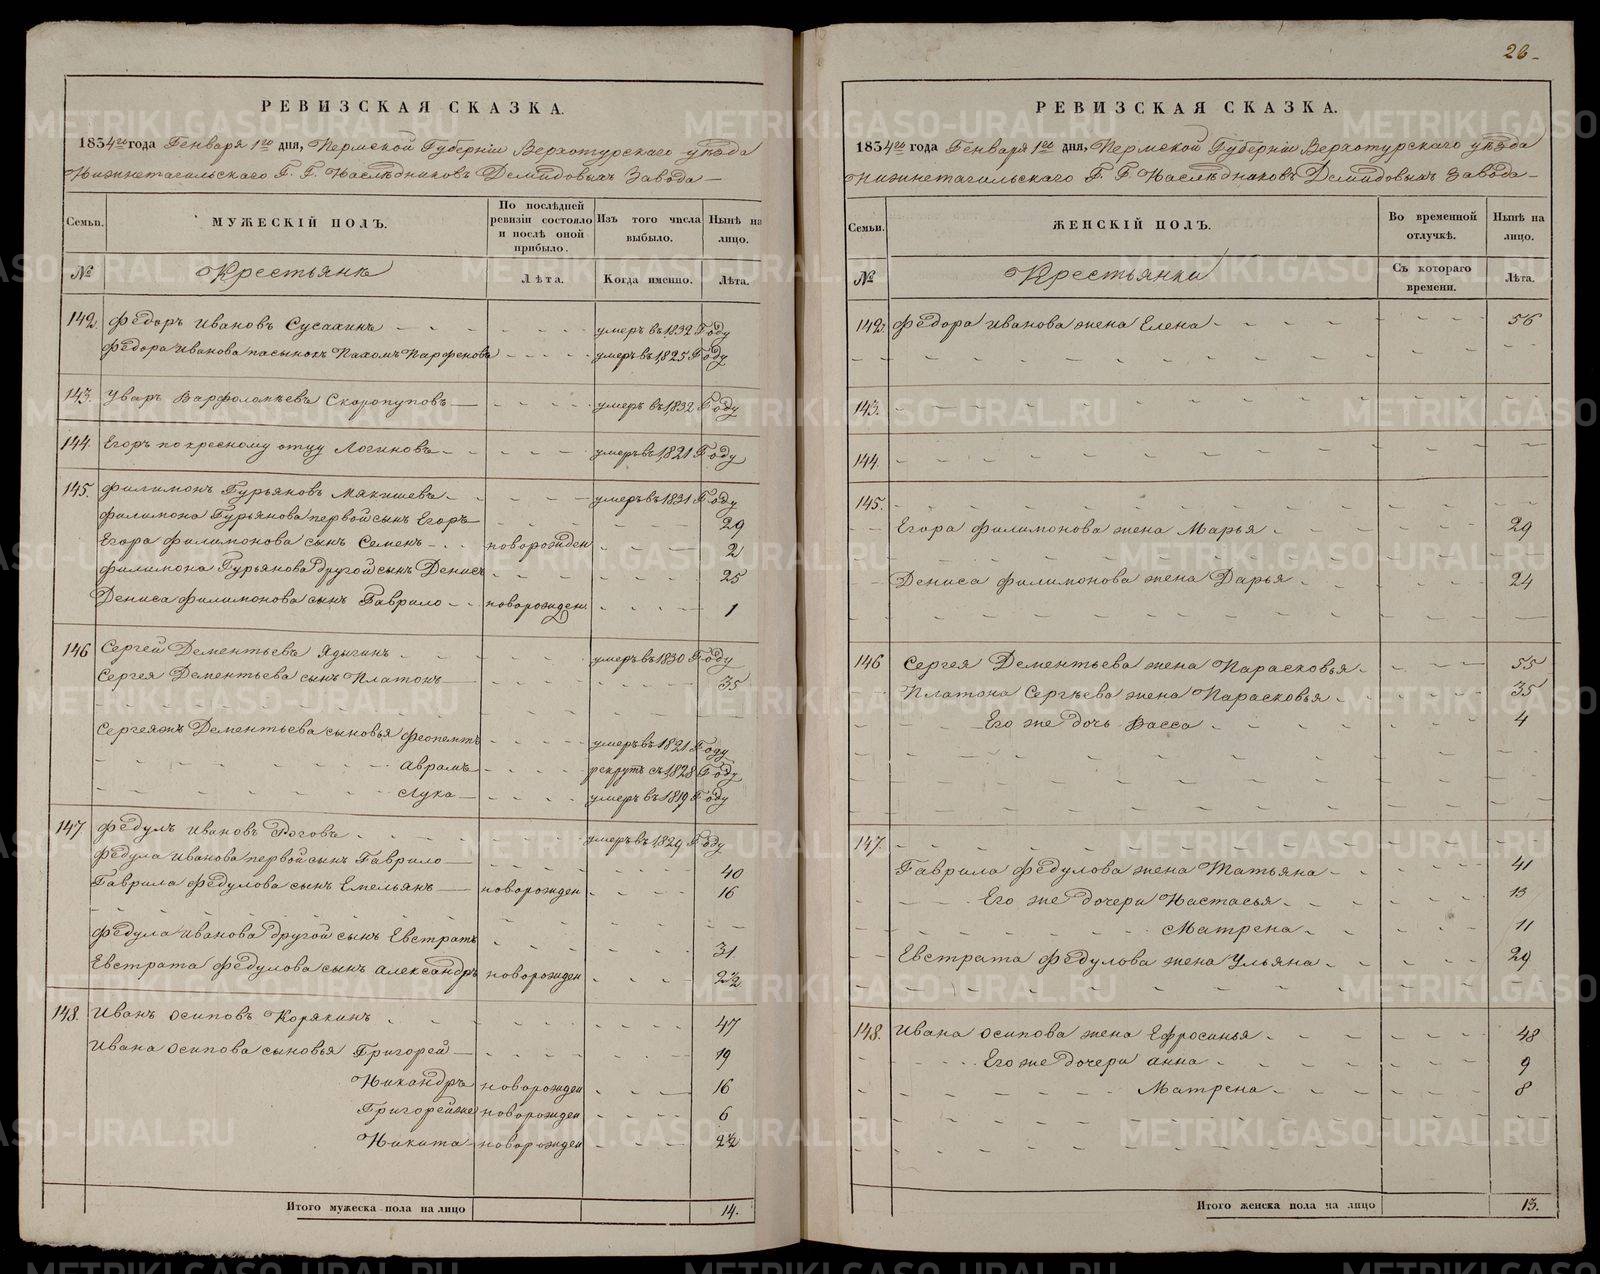 26
РЕВИЗСКАЯ СКАЗКА.
1834го года Генваря 1го дня, Пермской Губерніи Верхотурскаго уѣзда
Нижнетагильскаго Г. Г. Наслѣдниковъ Демидовыхъ Завода
Семьи. МУЖЕСКІЙ ПОЛЪ. По послѣдней ревизіи состояло и послѣ оной прибыло. Изъ того числа выбыло. Нынѣ на лицо.
№ Крестьянъ Лѣта. Когда именно. Лѣта.
142. Федоръ Ивановъ Сусахинъ умеръ въ 1832 Году
Федора Иванова пасынокъ Пахомъ Парфенова умеръ въ 1825 Году
143. Уваръ Варфоломѣевъ Скоропуповъ умеръ въ 1832 Году
144. Егоръ по кресному отцу Логиновъ умеръ въ 1821 Году
145. Филимонъ Гурьяновъ Мякишевъ умеръ въ 1831 Году
Филимона Гурьянова первой сынъ Егоръ 29
Егора Филимонова сынъ Семенъ новорожден 2
Филимона Гурьянова другой сынъ Денисъ 25
Дениса Филимонова сынъ Гаврило новорожден 1
146 Сергей Дементьевъ Ядыгинъ умеръ въ 1830 Году
Сергея Дементьева сынъ Платонъ 35
Сергея жъ Дементьева сыновья Феопемтъ умеръ въ 1821 Году
Аврамъ рекрутъ съ 1828 Году
Лука умеръ въ 1819 Году
147. Федулъ Ивановъ Роговъ умеръ въ 1829 Году
Федула Иванова первой сынъ Гаврило 40
Гаврила Федулова сынъ Емельянъ новорожден 16
Федула Иванова другой сынъ Евстратъ 31
Евстрата Федулова сынъ Александръ новорожден 2½
148. Иванъ Осиповъ Корякинъ 47
Ивана Осипова сыновья Григорей 19
Никандръ новорожден 16
Григорей же новорожден 6
Никита новорожден 2½
Итого мужеска пола на лицо 14.
РЕВИЗСКАЯ СКАЗКА.
1834го года Генваря 1го дня, Пермской Губерніи Верхотурскаго уѣзда
Нижнетагильскаго Г. Г. Наслѣдниковъ Демидовыхъ Завода
Семьи. ЖЕНСКІЙ ПОЛЪ. Во временной отлучкѣ. Нынѣ на лицо.
№ Крестьянки Съ котораго времени. Лѣта.
142. Федора Иванова жена Елена 56
143.
144.
145.
Егора Филимонова жена Марья 29
Дениса Филимонова жена Дарья 24
146 Сергея Дементьева жена Парасковья 55
Платона Сергѣева жена Парасковья 35
Его же дочь Васса 4
147.
Гаврила Федулова жена Татьяна 41
Его же дочери Настасья 13
Матрена 11
Евстрата Федулова жена Ульяна 29
148. Ивана Осипова жена Ефросинья 48
Его же дочери Анна 9
Матрена 8
Итого женска пола на лицо 13.
METRIKI.GASO-URAL.RU